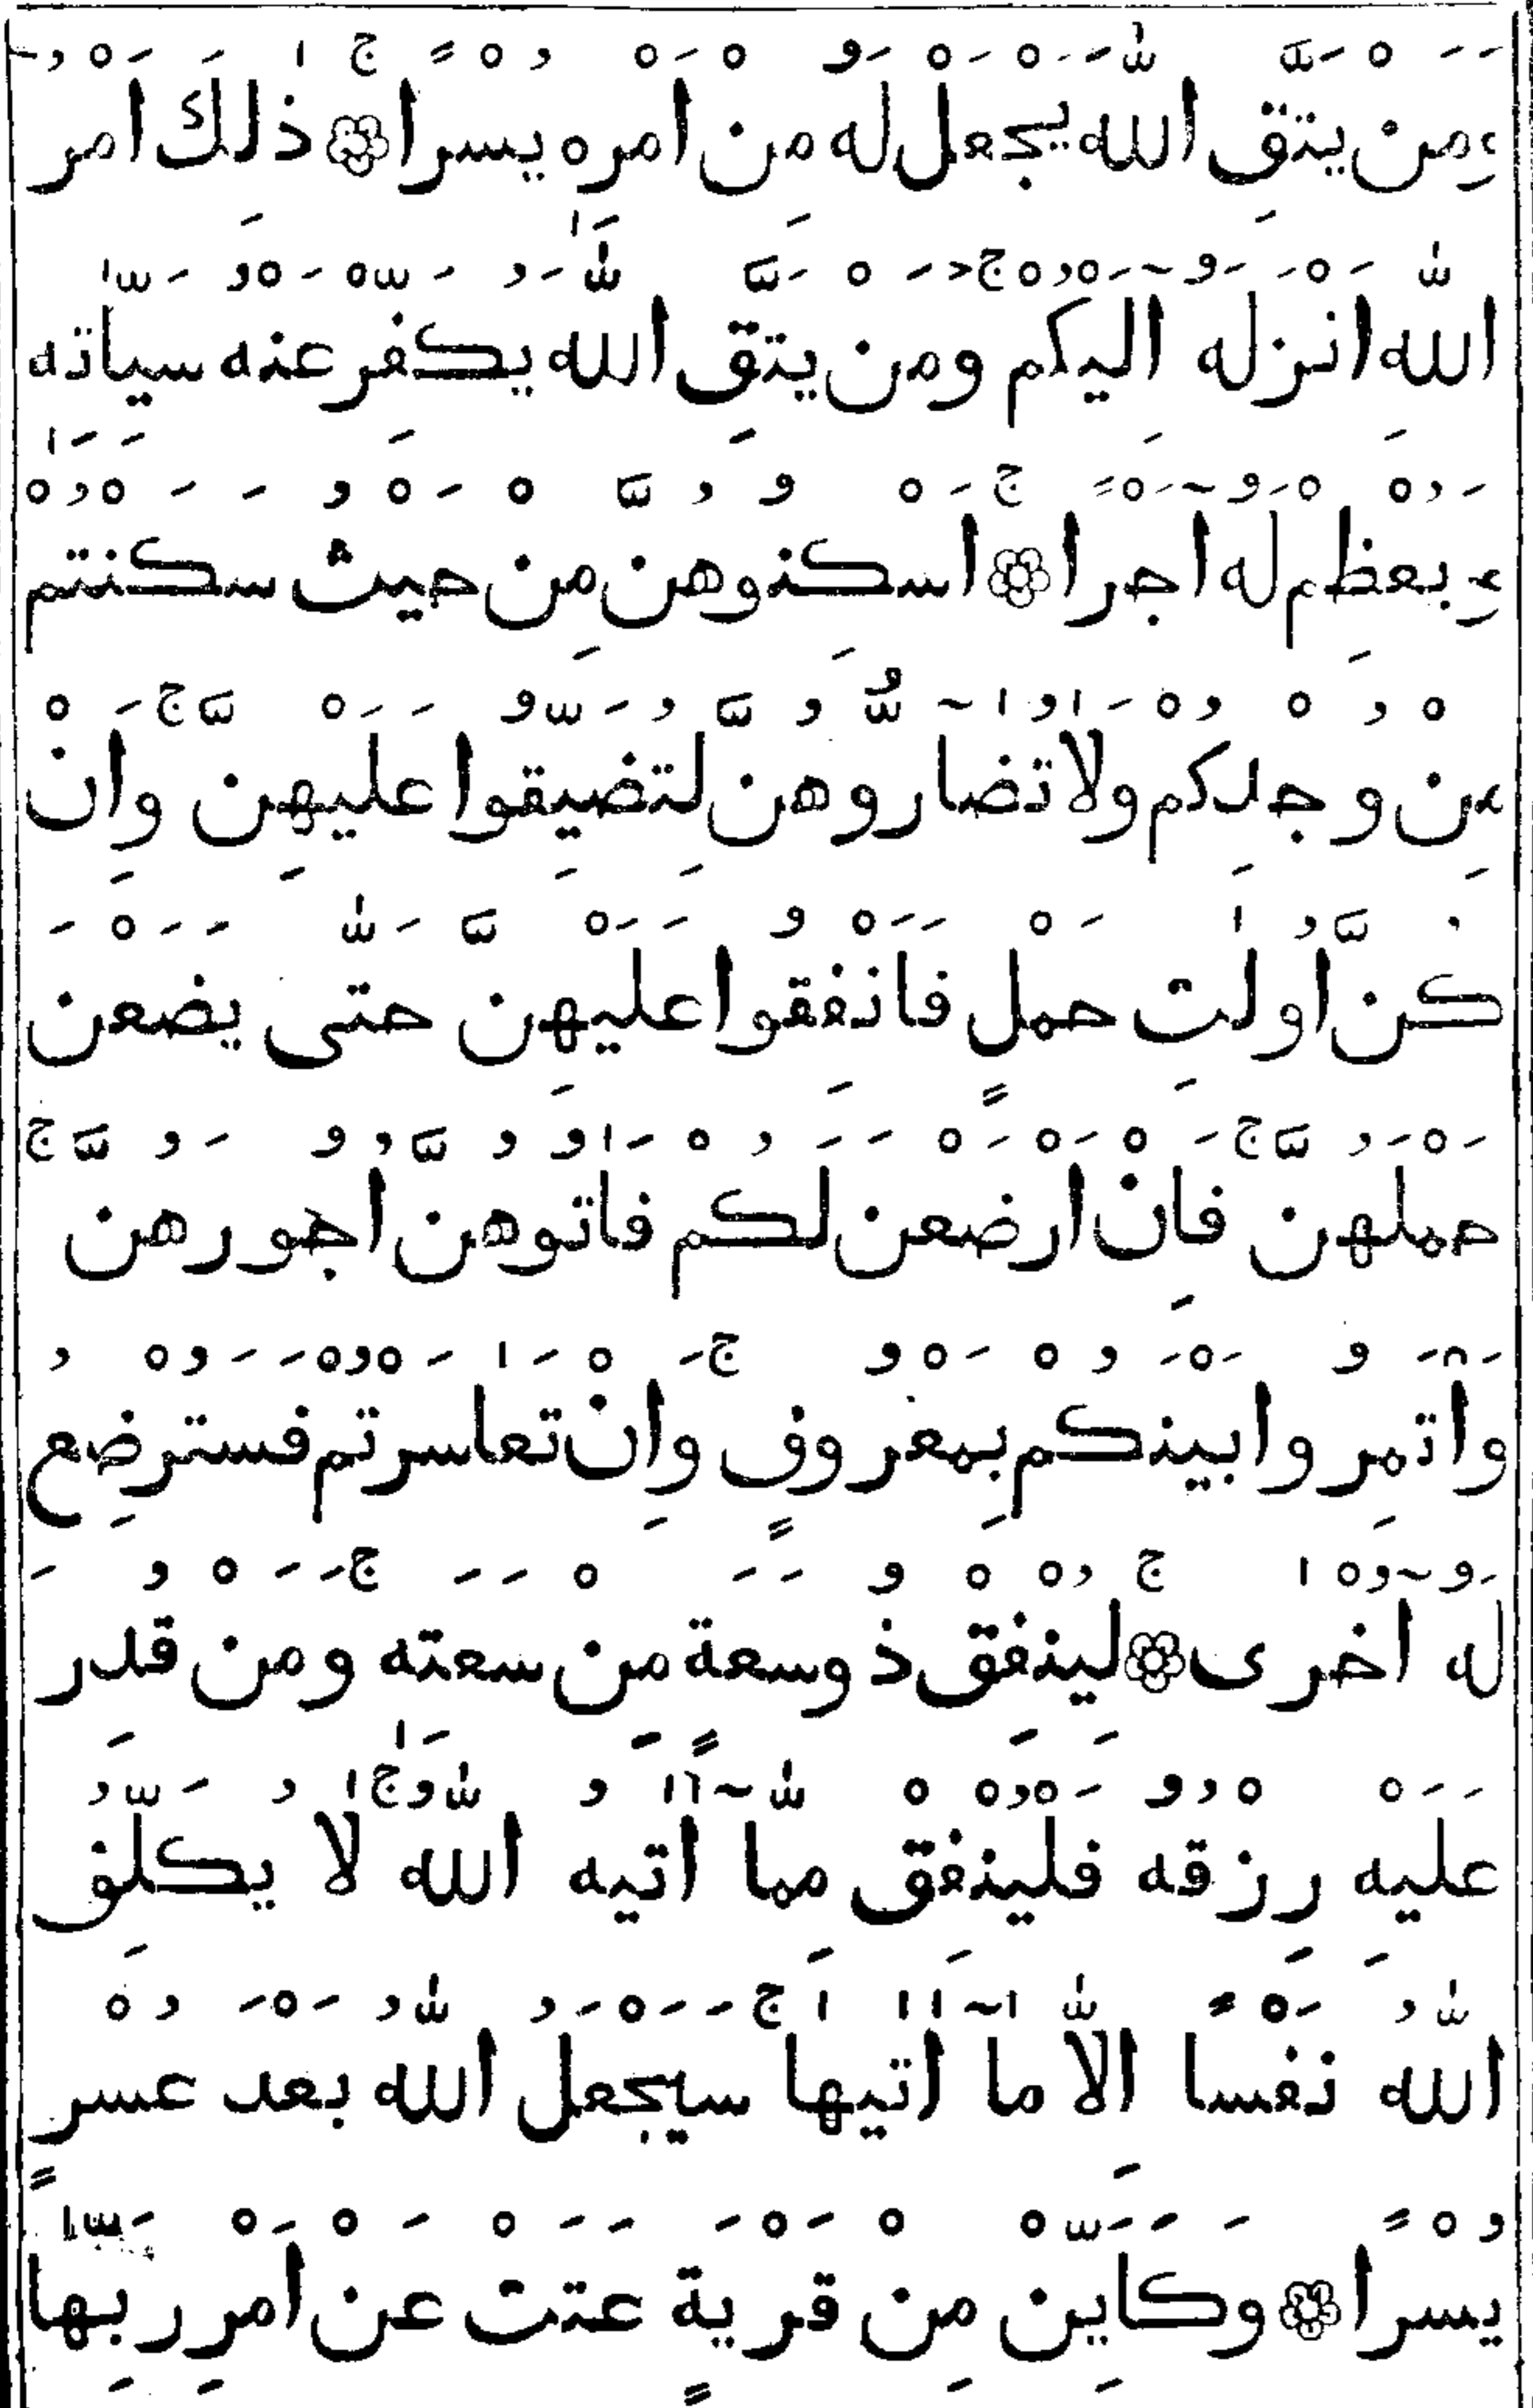 ومن يتق الله يجعل له من امره يسرا ۞ ذلك امر
الله انزله اليكم ومن يتق الله يكفر عنه سياته
ويعظم له اجرا ۞ اسكنوهن من حيث سكنتم
من وجدكم ولا تضاروهن لتضيقوا عليهن وان
كن اولت حمل فانفقوا عليهن حتى يضعن
حملهن فان ارضعن لكم فاتوهن اجورهن
واتمروا بينكم بمعروف وان تعاسرتم فسترضع
له اخرى ۞ لينفق ذو سعة من سعته ومن قدر
عليه رزقه فلينفق مما اتيه الله لا يكلف
الله نفسا الا ما اتيها سيجعل الله بعد عسر
يسرا ۞ وكاين من قرية عتت عن امر ربها